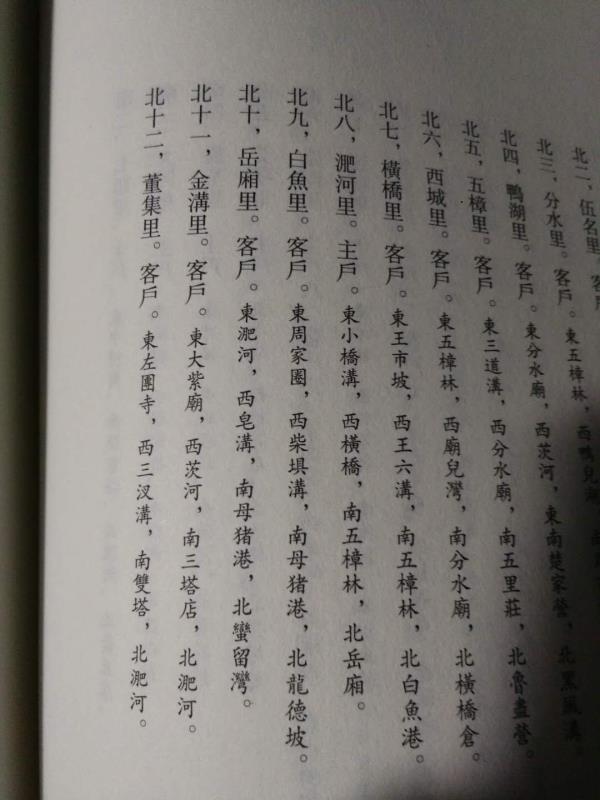 北二，伍名里。客戶。東五樟林，西鴨兒
北三，分水里。客戶。東分水廟，西茨河，東南楚家營，北黑風溝。
北四，鴨湖里。客戶。東三道溝，西分水廟，南五里莊，北魯盡營。
北五，五樟里。客戶。東五樟林，西廟兒灣，南分水廟，北橫橋倉。
北六，西城里。客戶。東王市坡，西王六溝，南五樟林，北白魚港。
北七，橫橋里。客戶。東小橋溝，西橫橋，南五樟林，北岳廂。
北八，淝河里。主戶。東周家圈，西柴埧溝，南母猪港，北龍德坡。
北九，白魚里。客戶。東淝河，西皂溝，南母猪港，北蠻留灣。
北十，岳廂里。客戶。東大紫廟，西茨河，南三塔店，北淝河。
北十一，金溝里。客戶。東左團寺，西三汊溝，南雙塔，北淝河。
北十二，董集里。客戶。